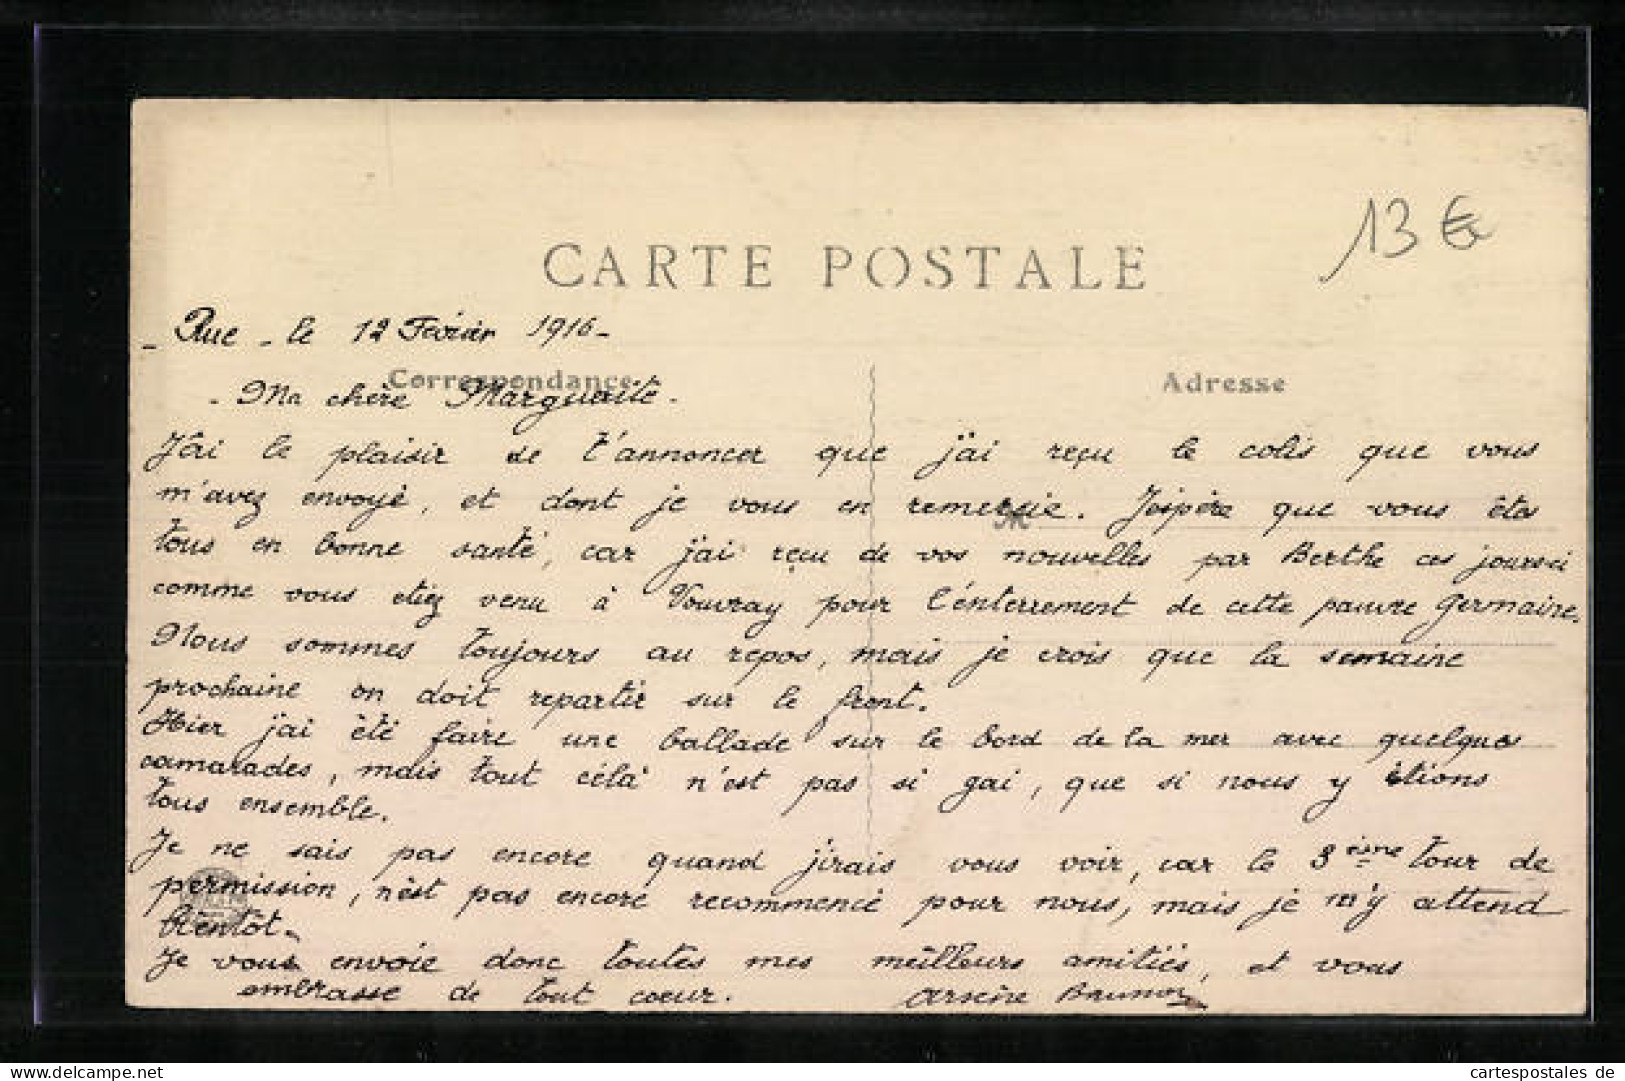 13 €
CARTE POSTALE
- Rue - le 12 Février 1916 -
Correspondance
Adresse
- Ma chère Marguerite -
J'ai le plaisir de t'annoncer que j'ai reçu le colis que vous
m'avez envoyé, et dont je vous en remercie. J'espère que vous êtes
tous en bonne santé, car j'ai reçu de vos nouvelles par Berthe ces jours-ci
comme vous etiez venu à Vouvray pour l'énterrement de cette pauvre Germaine.
Nous sommes toujours au repos, mais je crois que la semaine
prochaine on doit repartir sur le front.
Hier j'ai été faire une ballade sur le bord de la mer avec quelques
camarades, mais tout célà n'est pas si gai, que si nous y étions
tous ensemble.
Je ne sais pas encore quand j'irais vous voir, car le 3ème tour de
permission, n'est pas encore recommencé pour nous, mais je m'y attend
bientot.
Je vous envoie donc toutes mes meilleurs amitiés, et vous
embrasse de tout coeur. Arsène
www.delcampe.net
cartespostales de